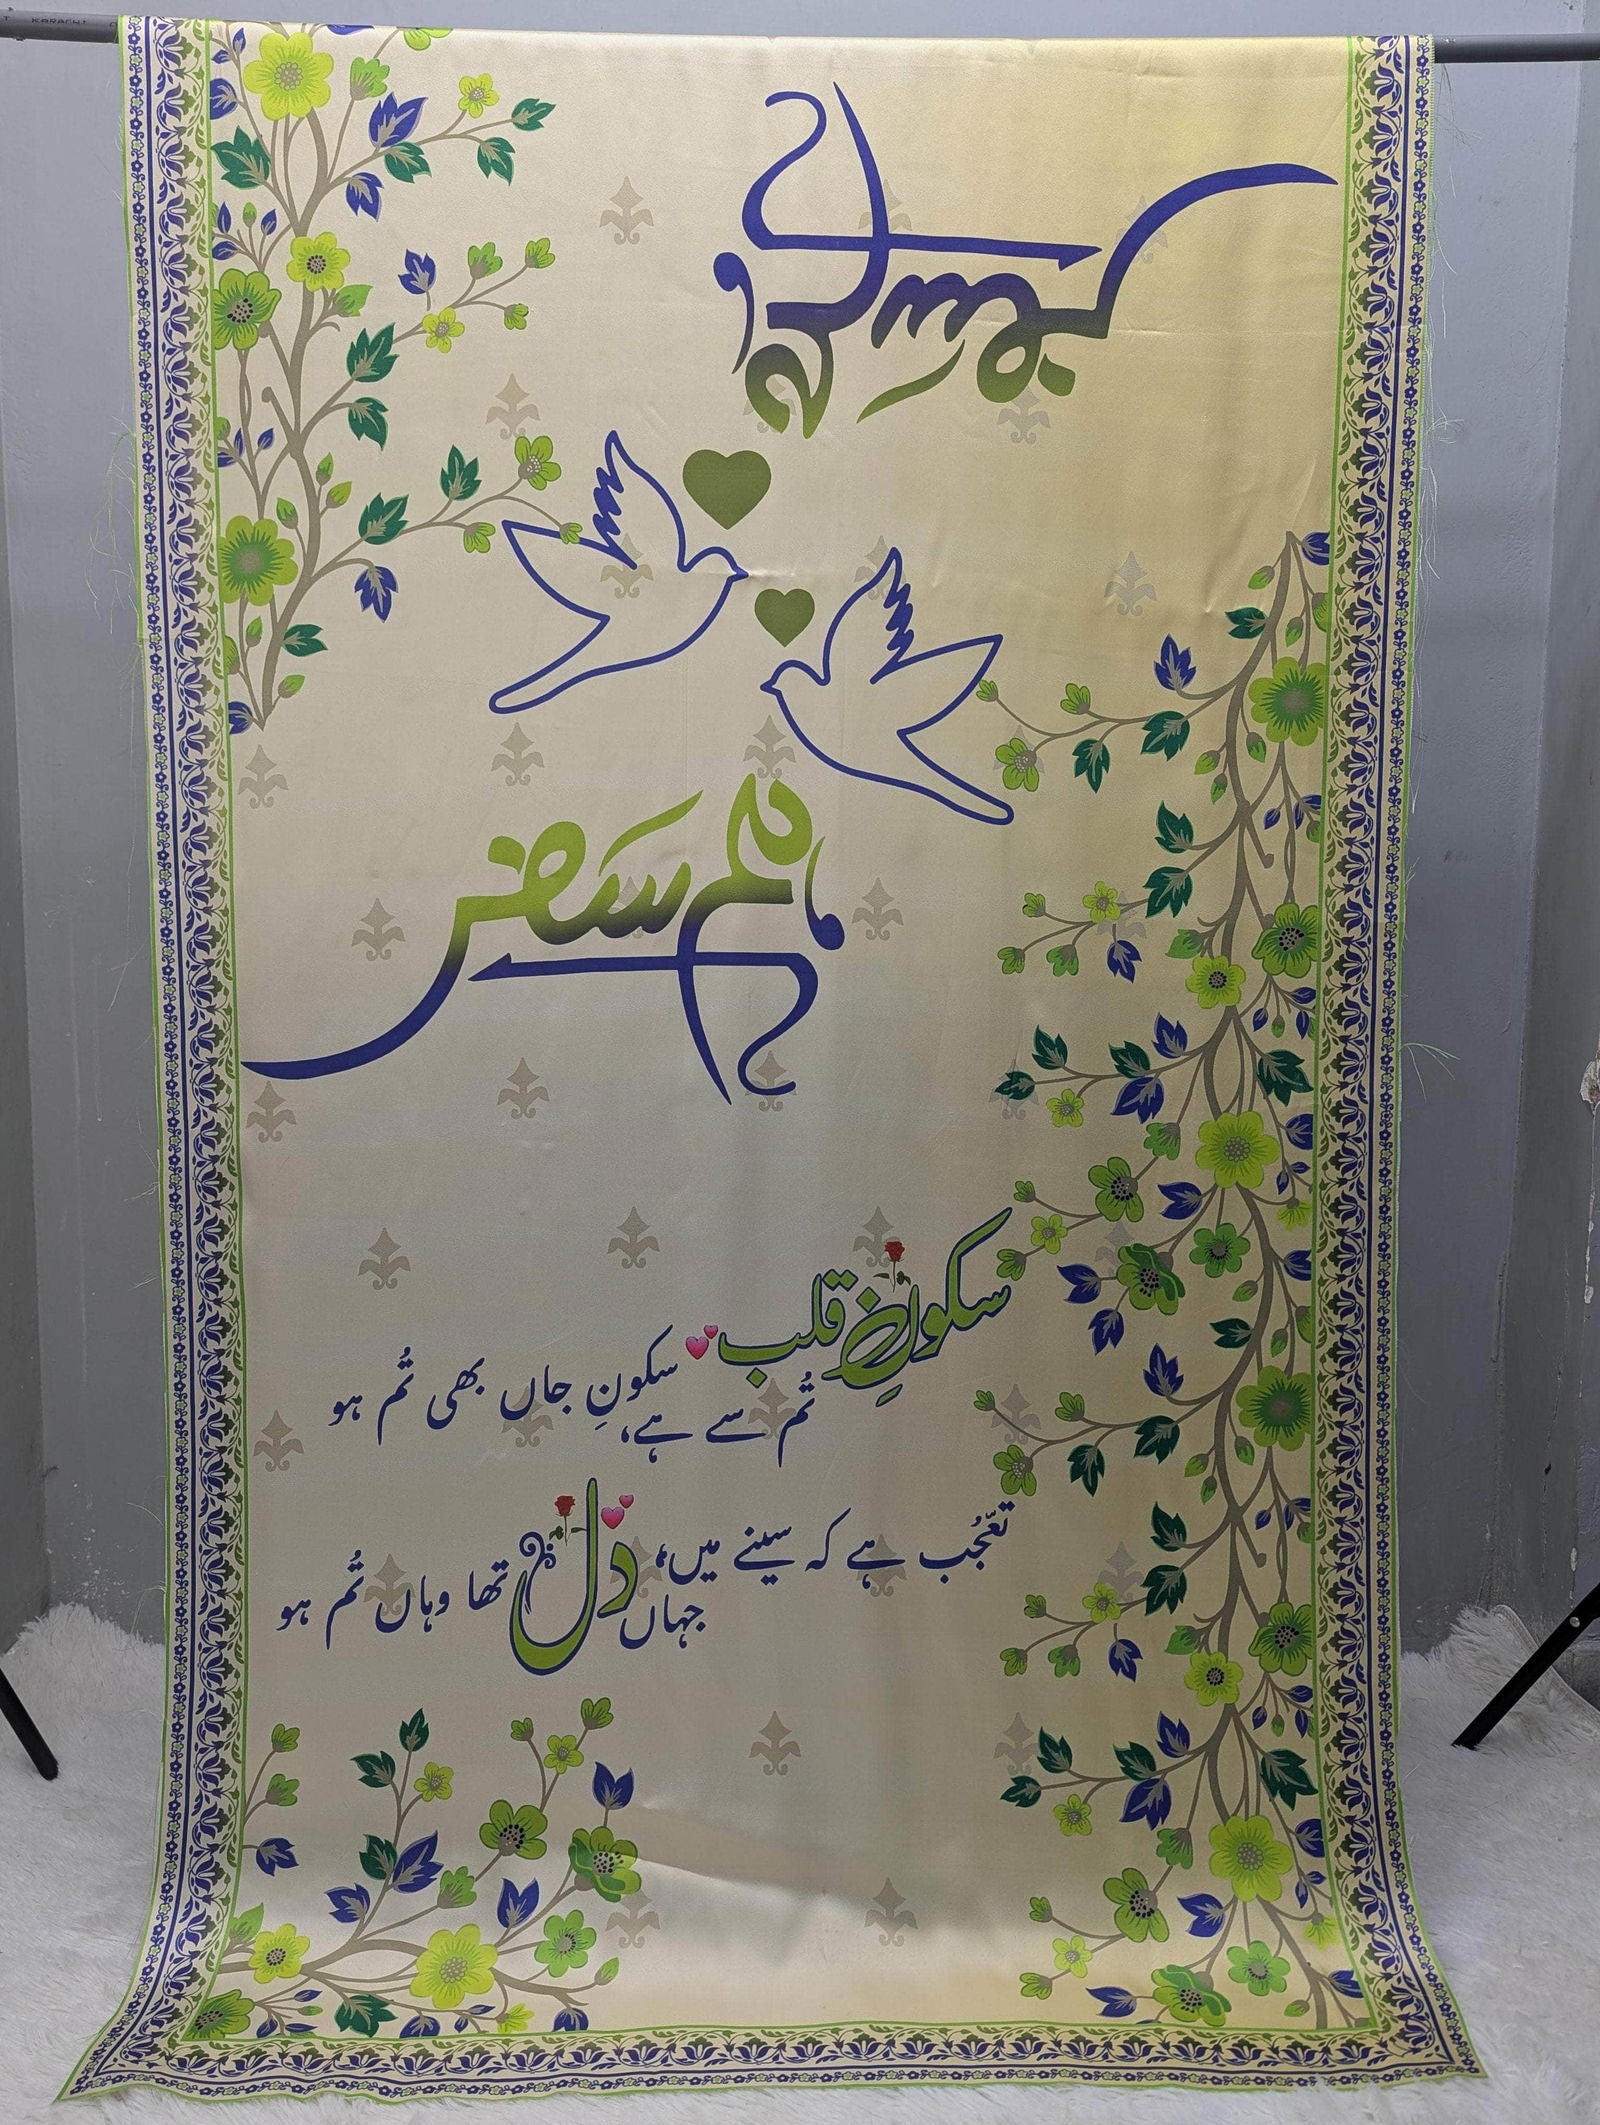 KARACHI
ہم سفر
ہم سفر
سکونِ قلب
تُم سے ہے، سکونِ جاں بھی تُم ہو
تعّجُب ہے کہ سینے میں،
جہاں دل تھا وہاں تُم ہو